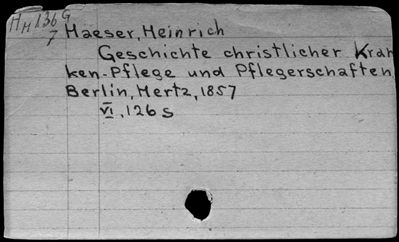 HH 136 G
7 Haeser, Heinrich
Geschichte christlicher Kran
ken-Pflege und Pflegerschaften
Berlin, Hertz, 1857
VI, 126 S